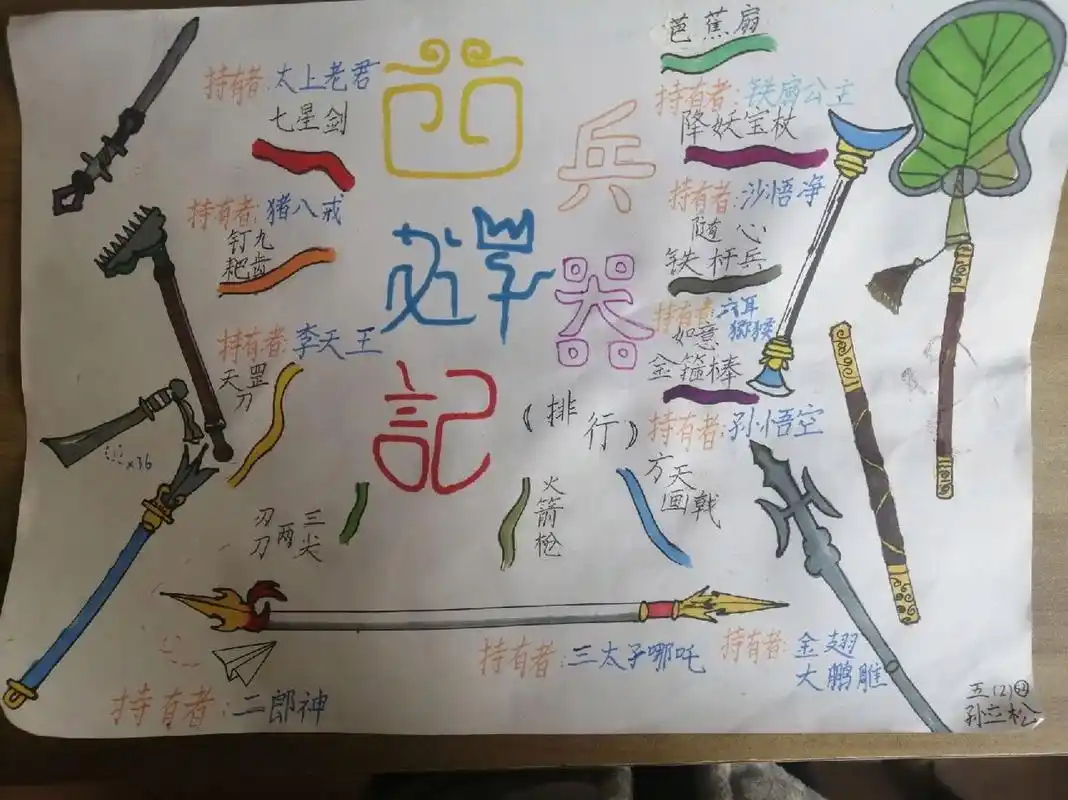 西
遊
記
兵
器
（排
行）
持有者：太上老君
七星剑
持有者：猪八戒
九齿
钉耙
持有者：李天王
天罡
刀
x36
三尖
两
刃刀
持有者：二郎神
火箭枪
持有者：三太子哪吒
方天
画戟
持有者：金翅
大鹏雕
芭蕉扇
持有者：铁扇公主
降妖宝杖
持有者：沙悟净
随心
铁杆兵
持有者：六耳
猕猴
如意
金箍棒
持有者：孙悟空
五(2)
孙立松